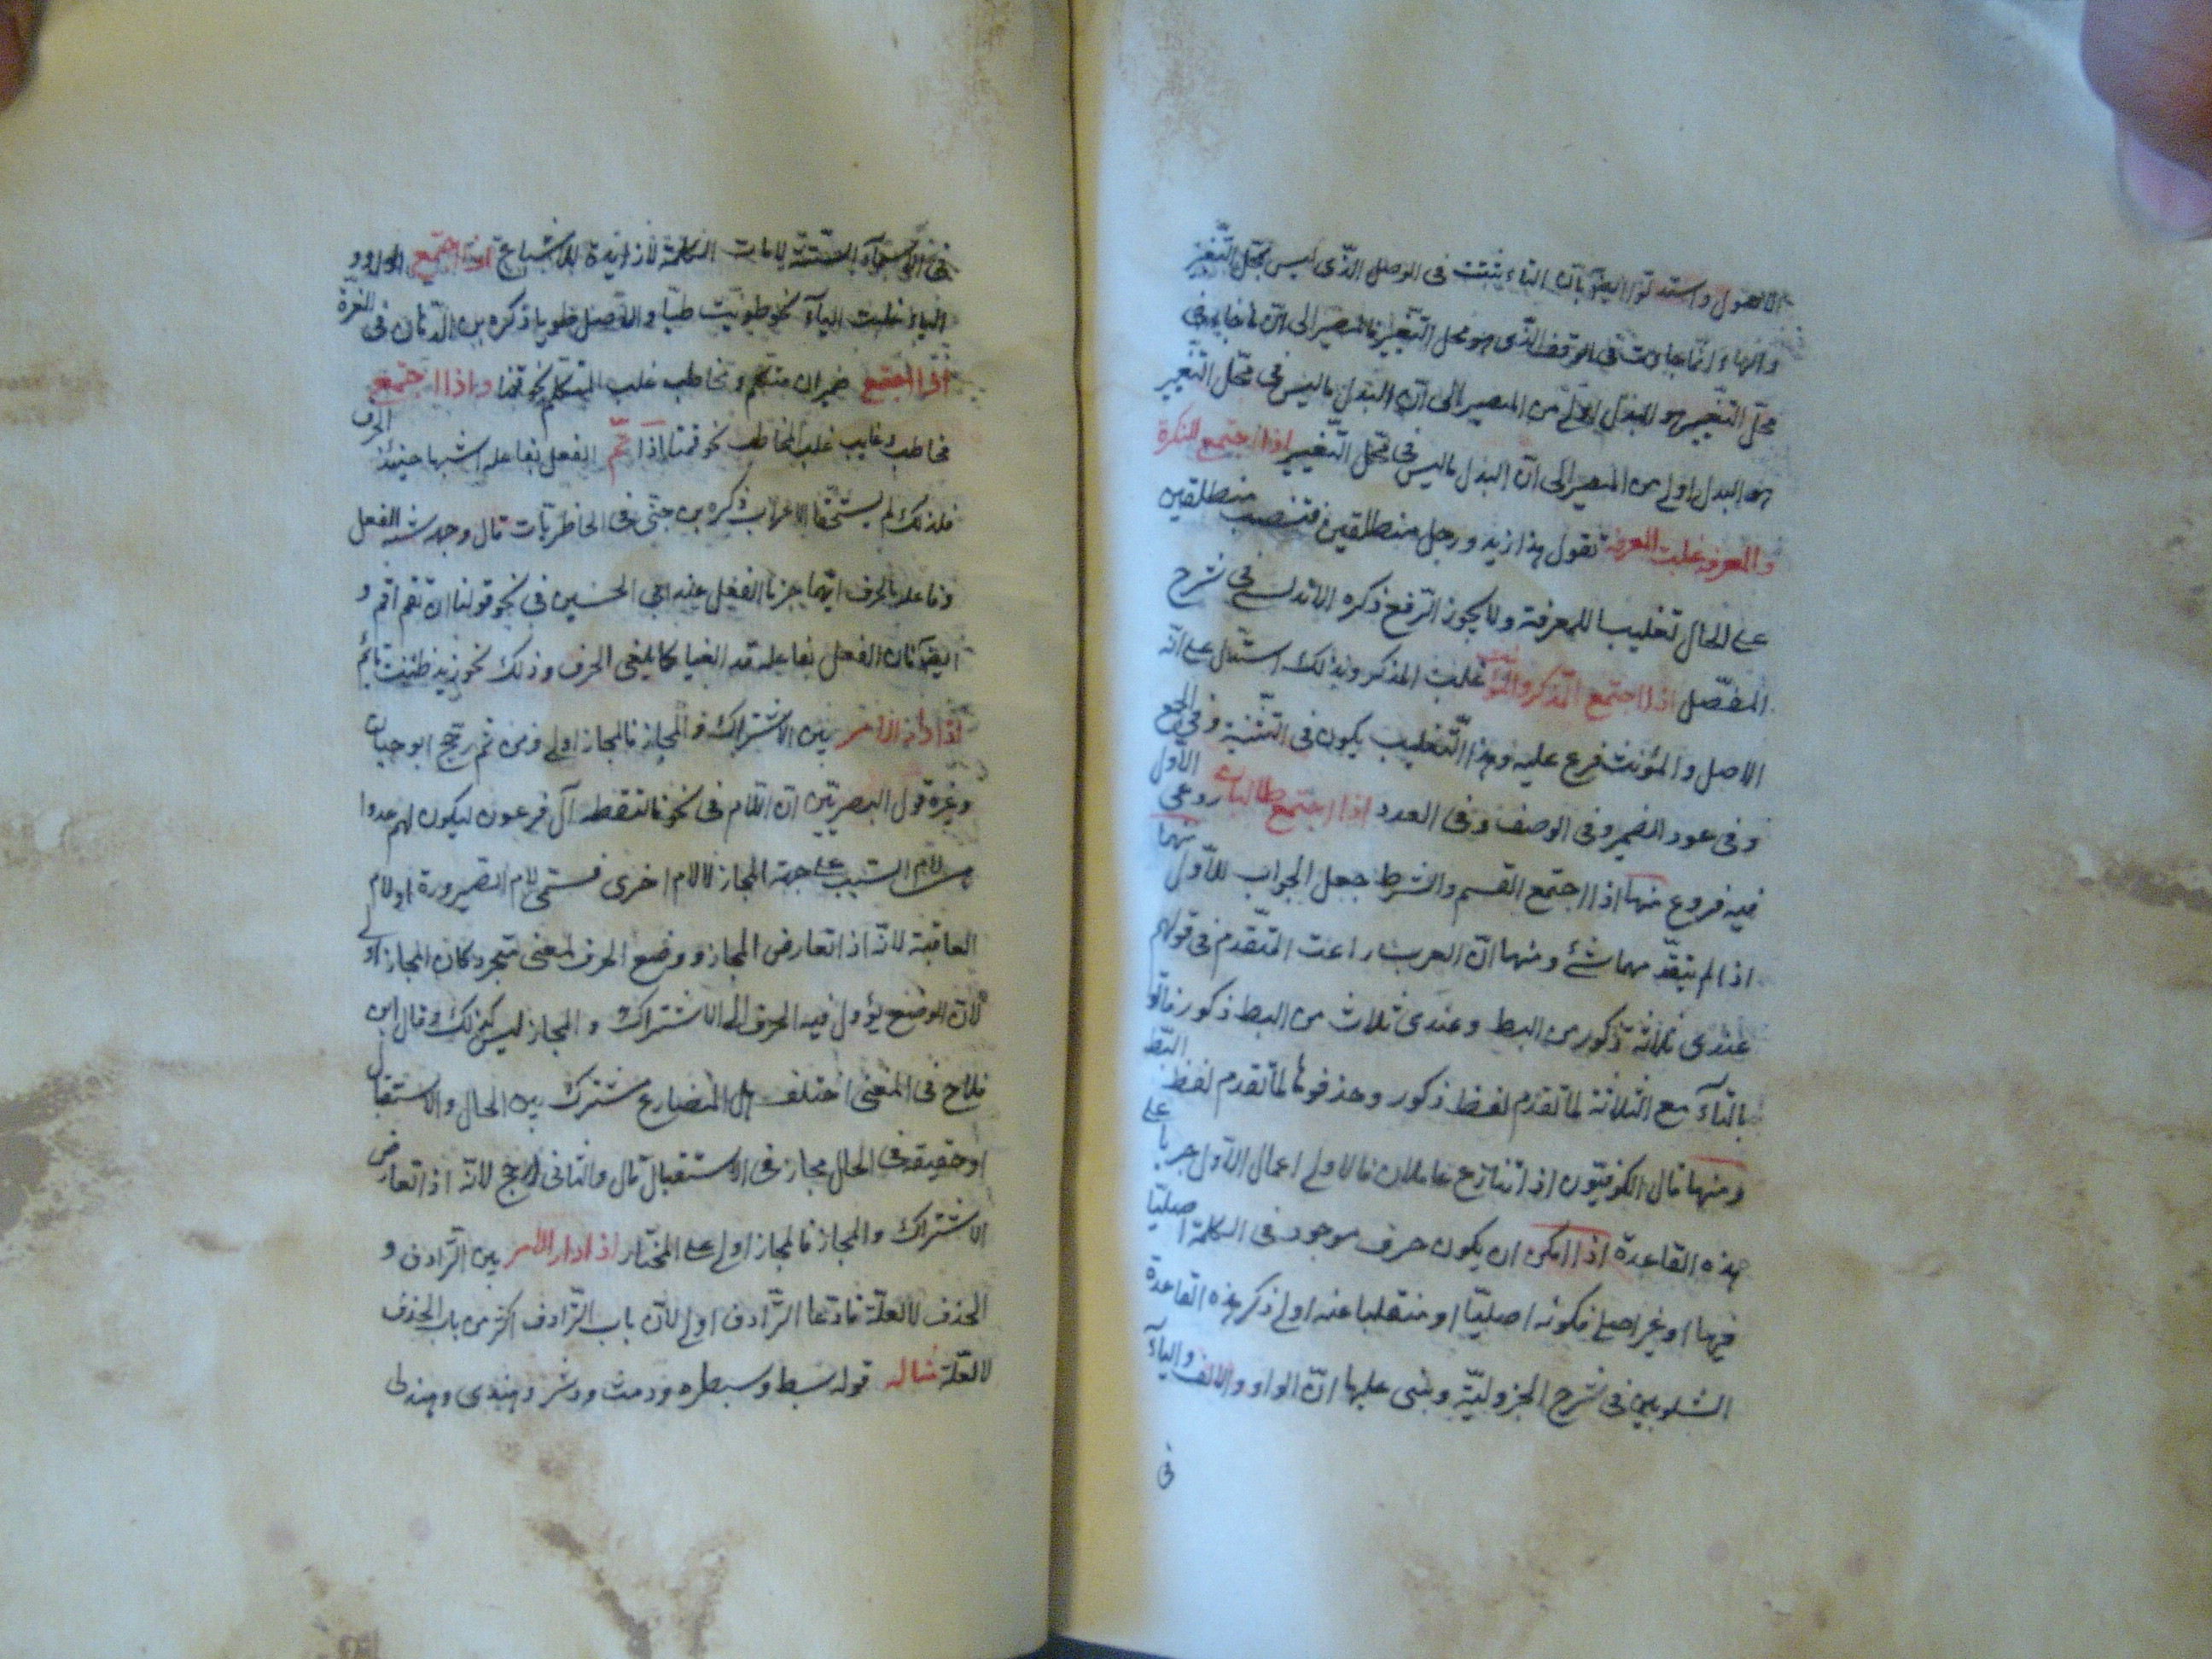 الاصول واستدلوا ايضا بان التاء تثبت فى الوصل الذى ليس بمحل التغيير
والهاء انما جاءت فى الوقف الذى هو محل التغيير فالمصير الى ان ما جاء فى
محل التغيير هو البدل اولى من المصير الى ان البدل ما ليس فى محل التغيير
هو البدل اولى من المصير الى ان البدل ما ليس فى محل التغيير اذا اجتمع النكرة
والمعرفة غلبت المعرفة تقول هذا زيد ورجل منطلقين فتنصب منطلقين
على الحال تغليبا للمعرفة ولا يجوز الرفع ذكره الاندلسى فى شرح
المفصل اذا اجتمع المذكر والمؤنث غلب المذكر وبذلك استدل على انه
الاصل والمؤنث فرع عليه وهذا التغليب يكون فى التثنية وفى الجمع
وفى عود الضمير وفى الوصف وفى العدد اذا اجتمع طالبان روعى الاول
فيه فروع منها اذا اجتمع القسم والشرط جعل الجواب للاول منهما
اذا لم يتقدمهما شئ ومنها ان العرب راعت المتقدم فى قولهم
عندى ثلاثة ذكور من البط وعندى ثلاث من البط ذكور فاتوا
بالتاء مع الثلاثة لما تقدم لفظ ذكور وحذفوها لما تقدم لفظ البط
ومنها قال الكوفيون اذا تنازع عاملان فالاولى اعمال الاول جريا على
هذه القاعدة اذا امكن ان يكون حرف موجود فى الكلمة اصليا
فيها او غير اصلى فكونه اصليا او منقلبا عنه اولى ذكر هذه القاعدة
الشلوبين فى شرح الجزولية وبنى عليها ان الواو والالف والياء
فى
فى الاسماء الستة لامات الكلمة لا زايدة للاشباع اذا اجتمع الواو و
الياء غلبت الياء نحو طويت طيا والاصل طويا ذكره بن الدهان فى الغرة
اذا اجتمع ضميران متكلم ومخاطب غلب المتكلم نحو قمنا واذا اجتمع
مخاطب وغايب غلب المخاطب نحو قمتما اذا تم الفعل بفاعله اشبها حينئذ الحرف
فلذلك لم يستحقا الاعراب ذكره بن جنى فى الخاطريات قال وجه شبه الفعل
وفاعله بالحرف انهما جزما الفعل عند ابى الحسين فى نحو قولنا ان تقم اقم و
ايضا فان الفعل بفاعله قد الغيا كما يلغى الحرف وذلك نحو زيد ظننت قائم
اذا دار الامر بين الاشتراك والمجاز فالمجاز اولى ومن ثم رجح ابو حيان
وغيره قول البصريين ان اللام فى نحو فالتقطه آل فرعون ليكون لهم عدوا
هى لام السبب على جهة المجاز لا لام اخرى فتسمى لام الصيرورة او لام
العاقبة لانه اذا تعارض المجاز ووضع الحرف لمعنى متجرد كان المجاز اولى
لان الوضع يؤول فيه الحرف الى الاشتراك والمجاز ليس كذلك وقال ابن
فلاح فى المغنى اختلف هل المضارع مشترك بين الحال والاستقبال
او حقيقة فى الحال مجاز فى الاستقبال قال والثانى ارجح لانه اذا تعارض
الاشتراك والمجاز فالمجاز اولى على المختار اذا دار الامر بين الترادف و
الحذف لا لعلة فادعا الترادف اولى لان باب الترادف اكثر من باب الحذف
لا لعلة مثاله قوله سبط وسبطره ودمث ودمثر وهندى وهندكى